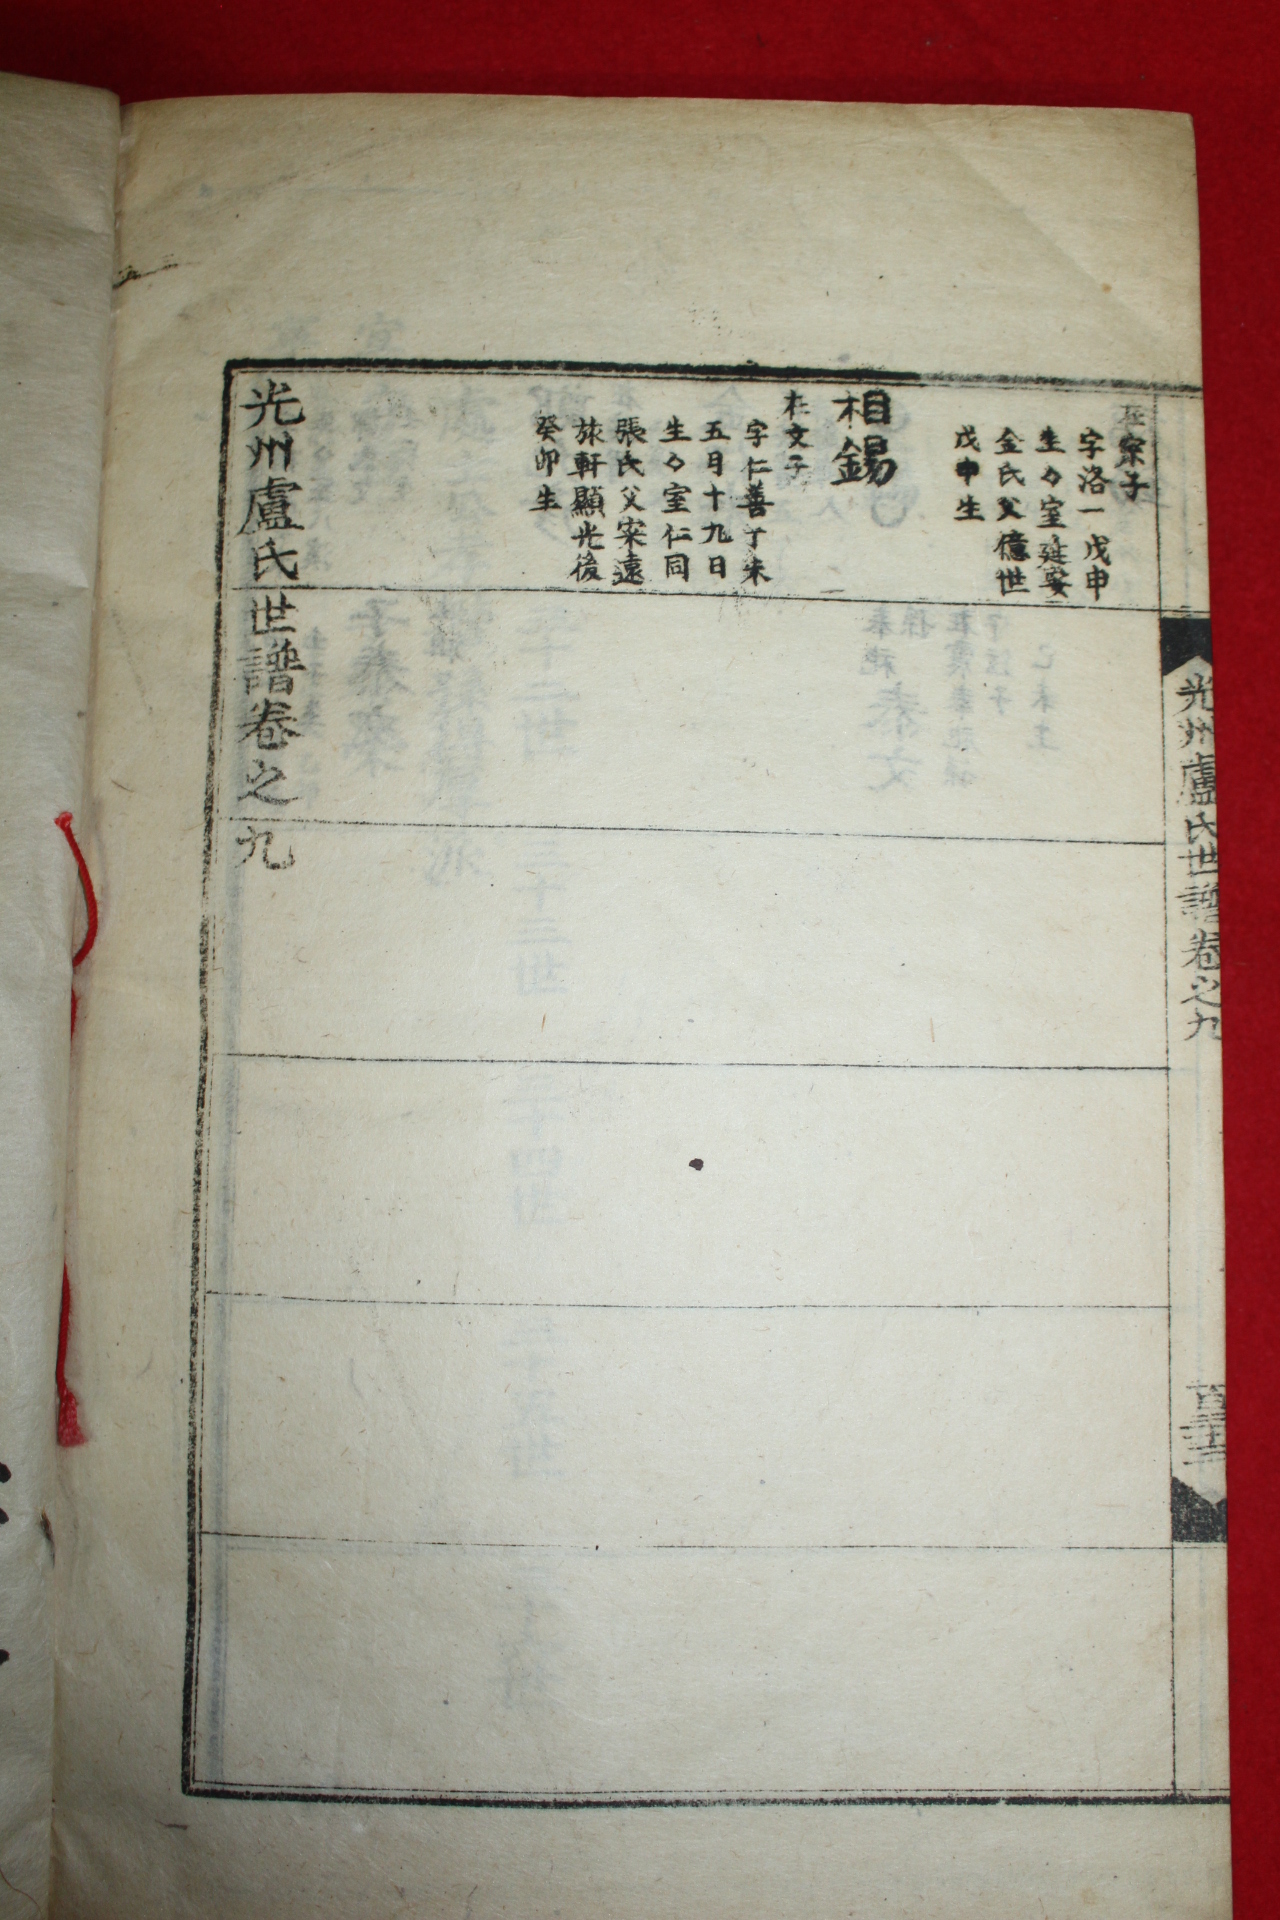 光州盧氏世譜卷之九
宗子
字洛一戊申
生々室延安
金氏父億世
戊申生
相錫
在文子
字仁善丁未
五月十九日
生々室仁同
張氏父寀遠
旅軒顯光後
癸卯生
光州盧氏世譜卷之九